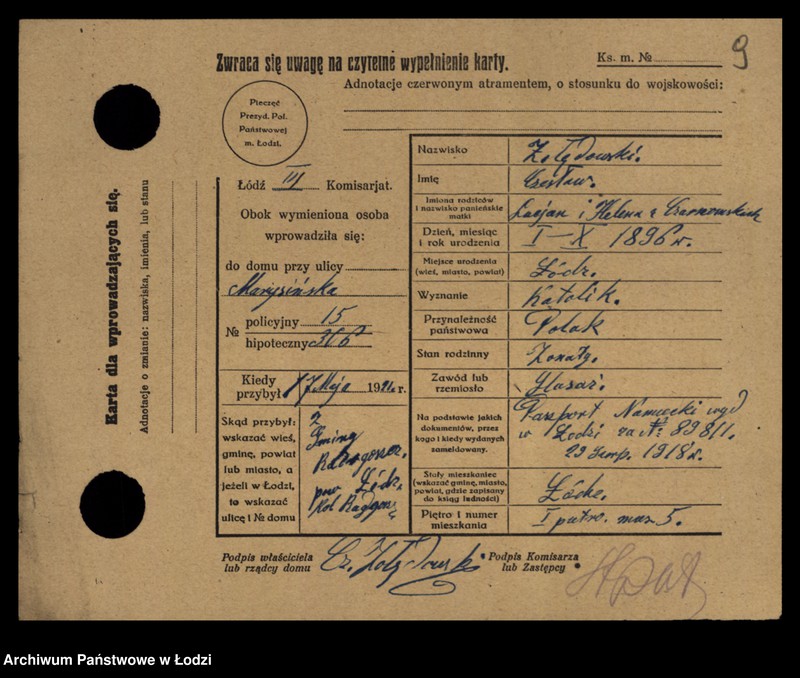 9
Zwraca się uwagę na czytelne wypełnienie karty.
Ks. m. №
Adnotacje czerwonym atramentem, o stosunku do wojskowości:
Pieczęć
Prezyd. Pol.
Państwowej
m. Łodzi.
Karta dla wprowadzających się.
Adnotacje o zmianie: nazwiska, imienia, lub stanu
Łódź III Komisarjat.
Obok wymieniona osoba
wprowadziła się:
do domu przy ulicy
Marysińska
№ policyjny 15
hipoteczny 366
Kiedy
przybył 17 Maja 1921 r.
Skąd przybył:
wskazać wieś,
gminę, powiat
lub miasto, a
jeżeli w Łodzi,
to wskazać
ulicę i № domu
z
Gminy
Radogoszcz.
pow. Łódz.
Kol Radogoszcz
Nazwisko Żołędowski.
Imię Czesław.
Imiona rodziców
i nazwisko panieńskie
matki
Łucjan i Helena z Czarnowskich
Dzień, miesiąc
i rok urodzenia
I-X 1896 r.
Miejsce urodzenia
(wieś, miasto, powiat)
Łódz.
Wyznanie Katolik.
Przynależność
państwowa
Polak
Stan rodzinny Żonaty.
Zawód lub
rzemiosło
Ślusarz.
Na podstawie jakich
dokumentów, przez
kogo i kiedy wydanych
zameldowany.
Paszport Niemiecki wyd
w Łodzi za №: 89811.
29 Sierp. 1918 r.
Stały mieszkaniec
(wskazać gminę, miasto,
powiat, gdzie zapisany
do ksiąg ludności)
Piętro i numer
mieszkania
I piętro. miesz. 5.
Podpis właściciela
lub rządcy domu
Cz. Żołędowski
Podpis Komisarza
lub Zastępcy
Archiwum Państwowe w Łodzi